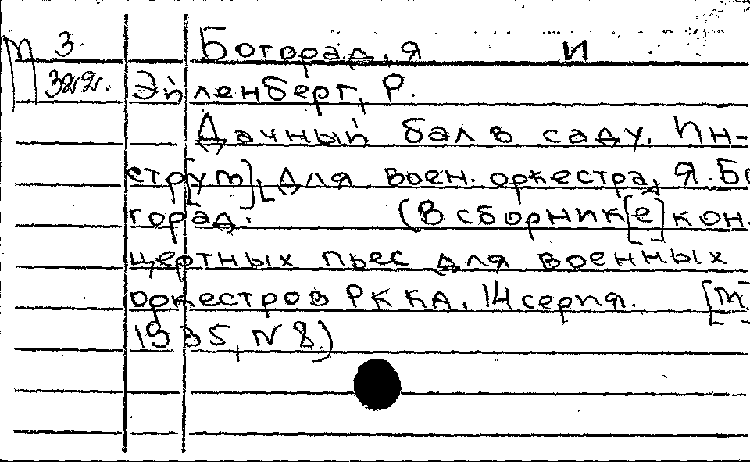 П 3 Богорад, Я И
Эйленберг, Р.
Дачный бал в саду. Ин-
стр[ум]. для воен. оркестра, Я. Бо
горад. (В сборник[е] кон-
цертных пьес для военных
оркестров РККА. 14 серия. [М]
1935, N 8)